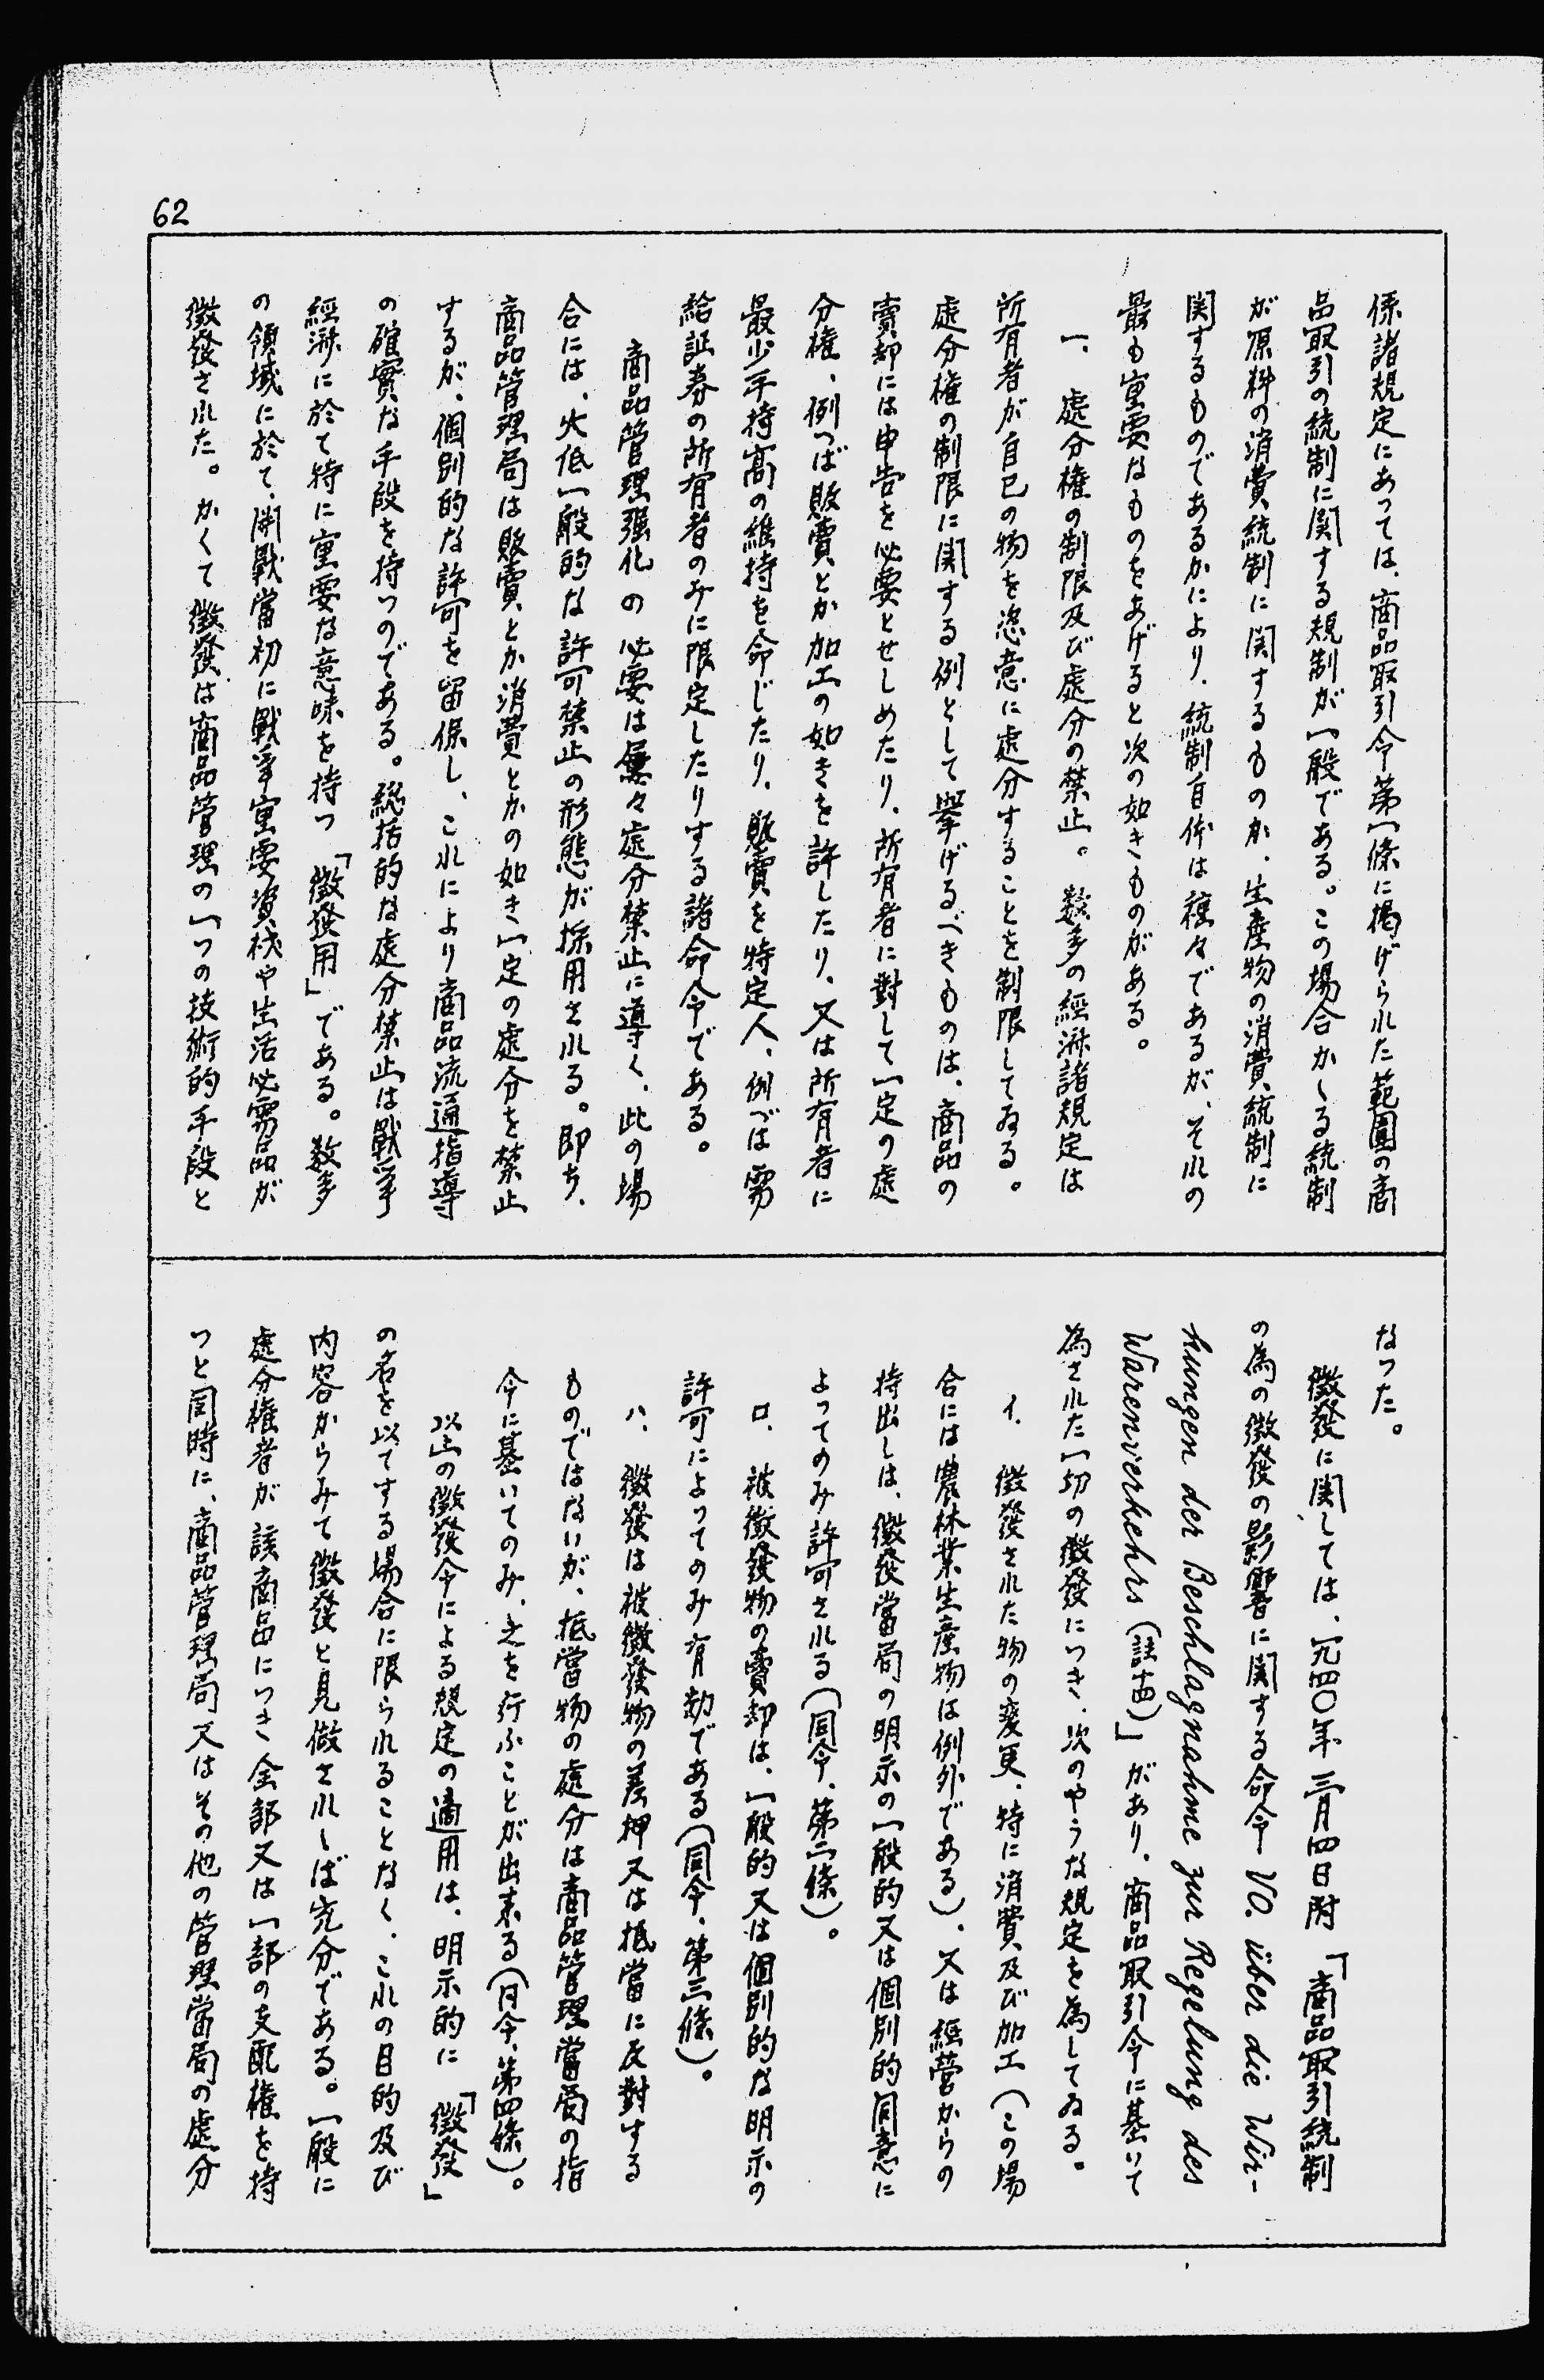 62
係諸規定にあっては、商品取引令第一條に掲げられた範圍の商
品取引の統制に関する規制が一般である。この場合かゝる統制
が原料の消費統制に関するものか、生産物の消費統制に
関するものであるかにより、統制自体は種々であるが、それの
最も重要なものをあげると次の如きものがある。
一、處分権の制限及び處分の禁止。数多の經濟諸規定は
所有者が自己の物を恣意に處分することを制限してゐる。
處分権の制限に関する例として擧げるべきものは、商品の
賣却には申告を必要とせしめたり、所有者に對して一定の處
分権、例へば販賣とか加工の如きを許したり、又は所有者に
最少手持高の維持を命じたり、販賣を特定人、例へば需
給証券の所有者のみに限定したりする諸命令である。
商品管理强化の必要は屢々處分禁止に導く、此の場
合には、大低一般的な許可禁止の形態が採用される。即ち、
商品管理局は販賣とか消費とかの如き一定の處分を禁止
するが、個別的な許可を留保し、これにより商品流通指導
の確實な手段を持つのである。総括的な處分禁止は戰爭
經濟に於て特に重要な意味を持つ「徴發用」である。数多
の領域に於て、開戰當初に戰爭重要資材や生活必需品が
徴發された。かくて徴發は商品管理の一つの技術的手段と
なった。
徴發に関しては、一九四〇年三月四日附「商品取引統制
の為の徴發の影響に関する命令 VO. über die Wir-
kungen der Beschlagnahme zur Regelung des
Warenverkehrs（註十四）」があり、商品取引令に基いて
為された一切の徴發につき、次のやうな規定を為してゐる。
イ、徴發された物の変更、特に消費及び加工（この場
合には農林業生産物は例外である）、又は經営からの
持出しは、徴發當局の明示の一般的又は個別的同意に
よってのみ許可される（同令、第二條）。
ロ、被徴發物の賣却は、一般的又は個別的な明示の
許可によってのみ有効である（同令、第三條）。
ハ、徴發は被徴發物の差押又は抵當に反對する
ものではないが、抵當物の處分は商品管理當局の指
令に基いてのみ、之を行ふことが出来る（同令、第四條）。
以上の徴發令による規定の適用は、明示的に「徴發」
の名を以てする場合に限られることなく、これの目的及び
内容からみて徴發と見做されゝば充分である。一般に
處分権者が該商品につき全部又は一部の支配権を持
つと同時に、商品管理局又はその他の管理當局の處分